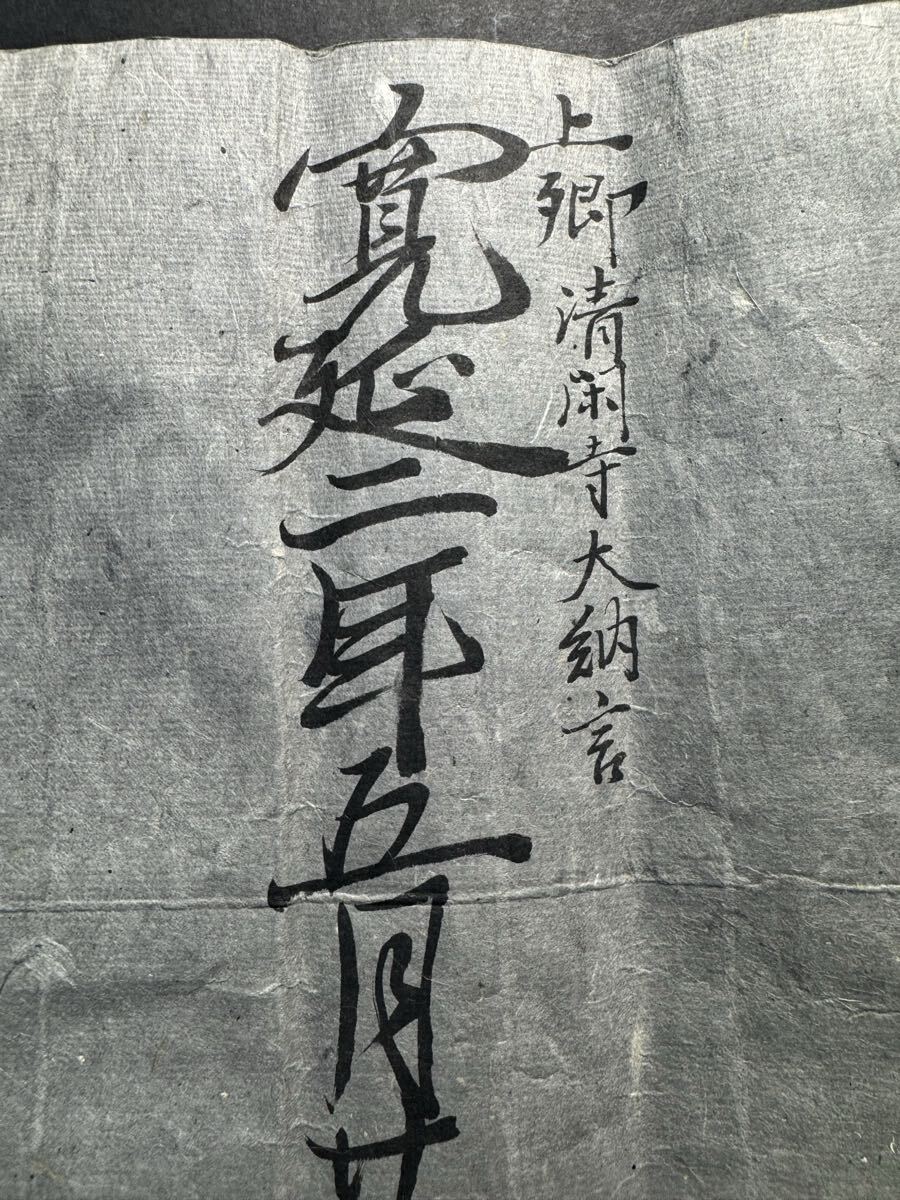 上卿清閑寺大納言
寛延二年五月廿